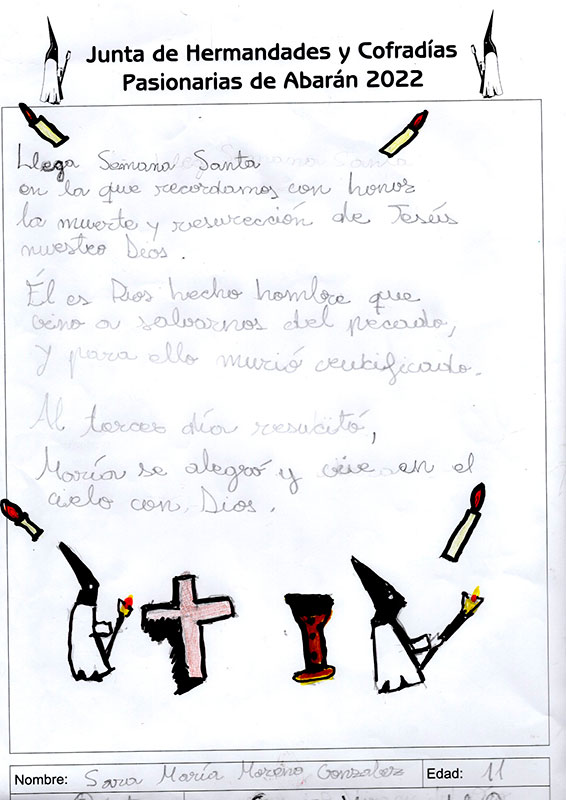 Junta de Hermandades y Cofradías
Pasionarias de Abarán 2022
Llega Semana Santa
en la que recordamos con honor
la muerte y resurección de Jesús
nuestro Dios.
Él es Dios hecho hombre que
vino a salvarnos del pecado,
y para ello murió crucificado.
Al tercer día resucitó,
María se alegró y vive en el
cielo con Dios.
Nombre: Sara María Moreno Gonzalez Edad: 11